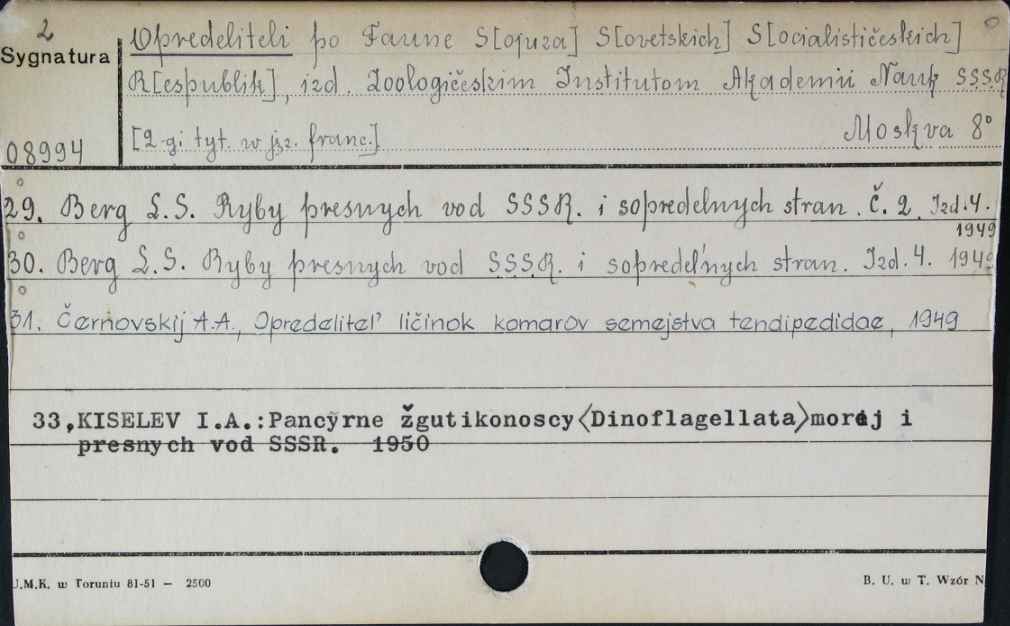 2
Sygnatura
08994
Opredeliteli po Faune S[ojuza] S[ovetskich] S[ocialističeskich]
R[espublik], izd. Zoologičeskim Institutom Akademii Nauk SSSR
[2-gi tyt. w jęz. franc.] Moskva 8°
29. Berg L.S. Ryby presnych vod SSSR. i sopredelnych stran. č. 2. Izd. 4.
1949
30. Berg L.S. Ryby presnych vod SSSR. i sopredel'nych stran. Izd. 4. 1949
31. Černovskij A.A., Opredelitel' ličinok komarov semejstva tendipedidae, 1949
33,KISELEV I.A.:Pancyrne žgutikonoscy<Dinoflagellata>morej i
presnych vod SSSR. 1950
U.M.K. w Toruniu 81-51 — 2500
B. U. w T. Wzór N